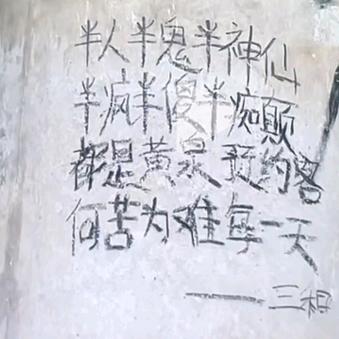 半人半鬼半神仙
半疯半傻半痴颠
都是黄泉预约客
何苦为难每一天
——三相